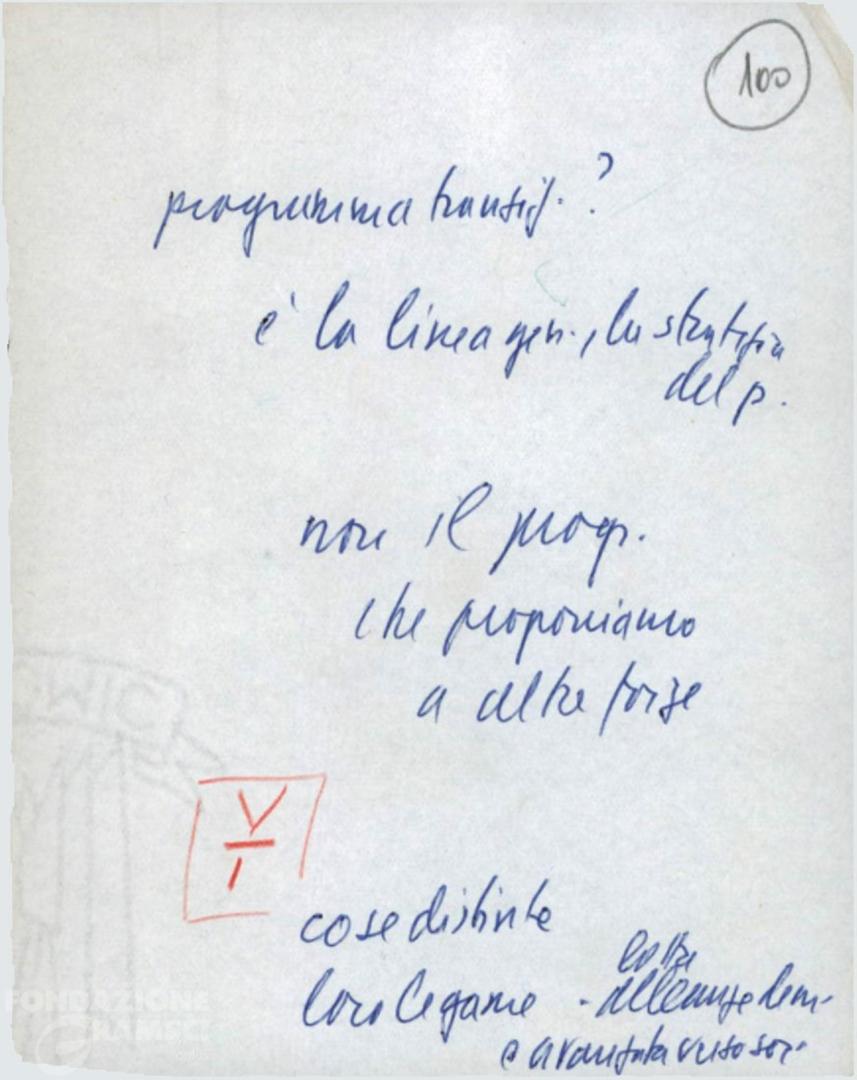 100
programma transiz. ?
è la linea gen., la strategia
del p.
non il progr.
che proponiamo
a altre forze
V
cose distinte
loro legame - alleanze dem.
e avanzata verso soc.
FONDAZIONE
GRAMSCI